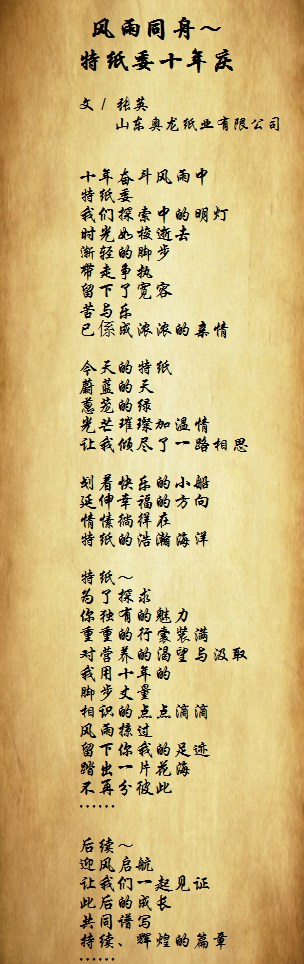 风雨同舟～
特纸委十年庆
文 / 张英
山东奥龙纸业有限公司
十年奋斗风雨中
特纸委
我们探索中的明灯
时光如梭逝去
渐轻的脚步
带走争执
留下了宽容
苦与乐
已係成浓浓的亲情
今天的特纸
蔚蓝的天
葱茏的绿
光芒璀璨加温情
让我倾尽了一路相思
划着快乐的小船
延伸幸福的方向
情愫徜徉在
特纸的浩瀚海洋
特纸～
为了探求
你独有的魅力
重重的行囊装满
对营养的渴望与汲取
我用十年的
脚步丈量
相识的点点滴滴
风雨掠过
留下你我的足迹
踏出一片花海
不再分彼此
……
后续～
迎风启航
让我们一起见证
此后的成长
共同谱写
持续、辉煌的篇章
……